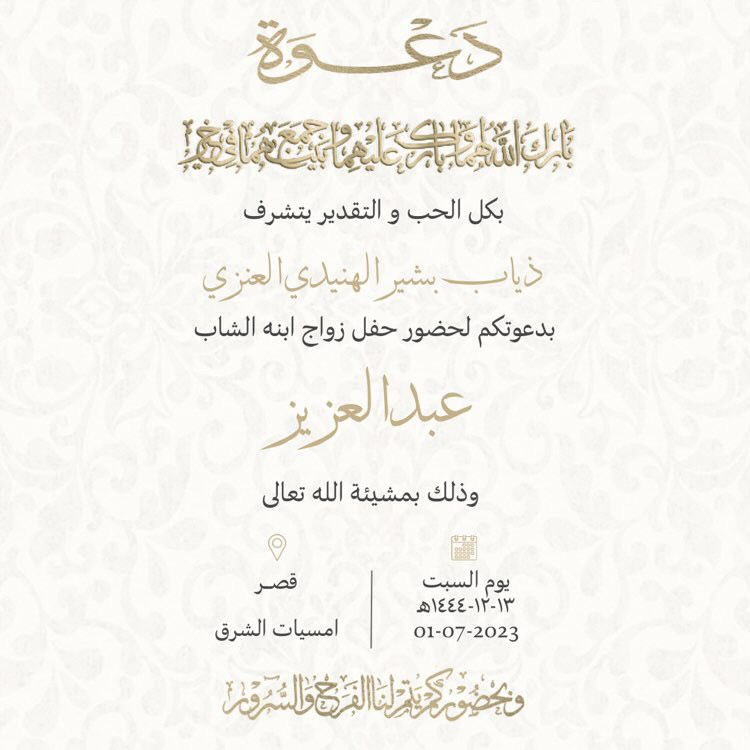 دعوة
بارك الله لهما وبارك عليهما وجمع بينهما في خير
بكل الحب و التقدير يتشرف
ذياب بشير الهنيدي العنزي
بدعوتكم لحضور حفل زواج ابنه الشاب
عبدالعزيز
وذلك بمشيئة الله تعالى
يوم السبت
١٣-١٢-١٤٤٤هـ
01-07-2023
قصر
امسيات الشرق
وبحضوركم يتم لنا الفرح والسرور